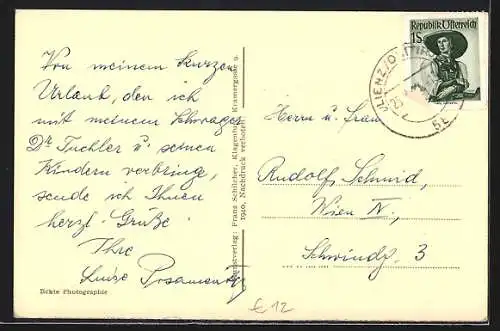 Von meinem kurzen
Urlaub, den ich
mit meinem Schwager
Dr Tuchler u. seinen
Kindern verbringe,
sende ich Ihnen
herzl. Grüße.
Ihre
Luise
Echte Photographie
Kunstverlag: Franz Schilcher, Klagenfurt, Kramergasse 9.
1940, Nachdruck verboten
Republik Österreich
1S
LIENZ (OSTTIROL)
5c
Herrn u. Frau
Rudolf Schmid,
Wien IV,
Schwindg. 3
€ 12